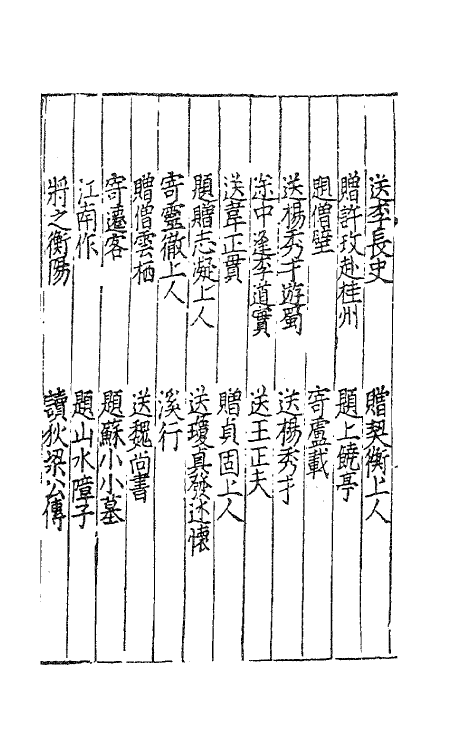 送李長史　贈契衡上人
贈許玫赴桂州　題上饒亭
題僧壁　寄盧載
送楊秀才遊蜀　送楊秀才
途中逢李道實　送王正夫
送韋正貫　贈貞固上人
題贈志凝上人　送瓊真發述懷
寄靈徹上人　溪行
贈僧雲栖　送魏尚書
寄遷客　題蘇小小墓
江南作　題山水障子
將之衡陽　讀狄梁公傳